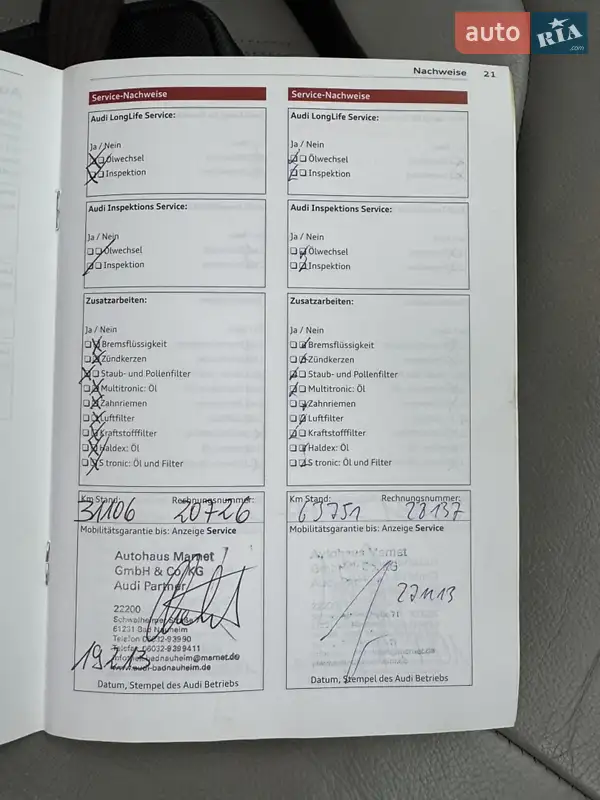 auto RIA .com
Nachweise 21
Service-Nachweise
Audi LongLife Service:
Ja / Nein
Ölwechsel
Inspektion
Audi Inspektions Service:
Ja / Nein
Ölwechsel
Inspektion
Zusatzarbeiten:
Ja / Nein
Bremsflüssigkeit
Zündkerzen
Staub- und Pollenfilter
Multitronic: Öl
Zahnriemen
Luftfilter
Kraftstofffilter
Haldex: Öl
S tronic: Öl und Filter
Km Stand: Rechnungsnummer:
31106 20726
Mobilitätsgarantie bis: Anzeige Service
Autohaus Marnet
GmbH & Co. KG
Audi Partner
22200
Schwalheimer
61231 Bad Nauheim
Telefon 06032-93990
Telefax 06032-9399411
badnauheim@marnet.de
audi-badnauheim.de
Datum, Stempel des Audi Betriebs
Service-Nachweise
Audi LongLife Service:
Ja / Nein
Ölwechsel
Inspektion
Audi Inspektions Service:
Ja / Nein
Ölwechsel
Inspektion
Zusatzarbeiten:
Ja / Nein
Bremsflüssigkeit
Zündkerzen
Staub- und Pollenfilter
Multitronic: Öl
Zahnriemen
Luftfilter
Kraftstofffilter
Haldex: Öl
S tronic: Öl und Filter
Km Stand: Rechnungsnummer:
63751 28137
Mobilitätsgarantie bis: Anzeige Service
Autohaus Marnet
Datum, Stempel des Audi Betriebs